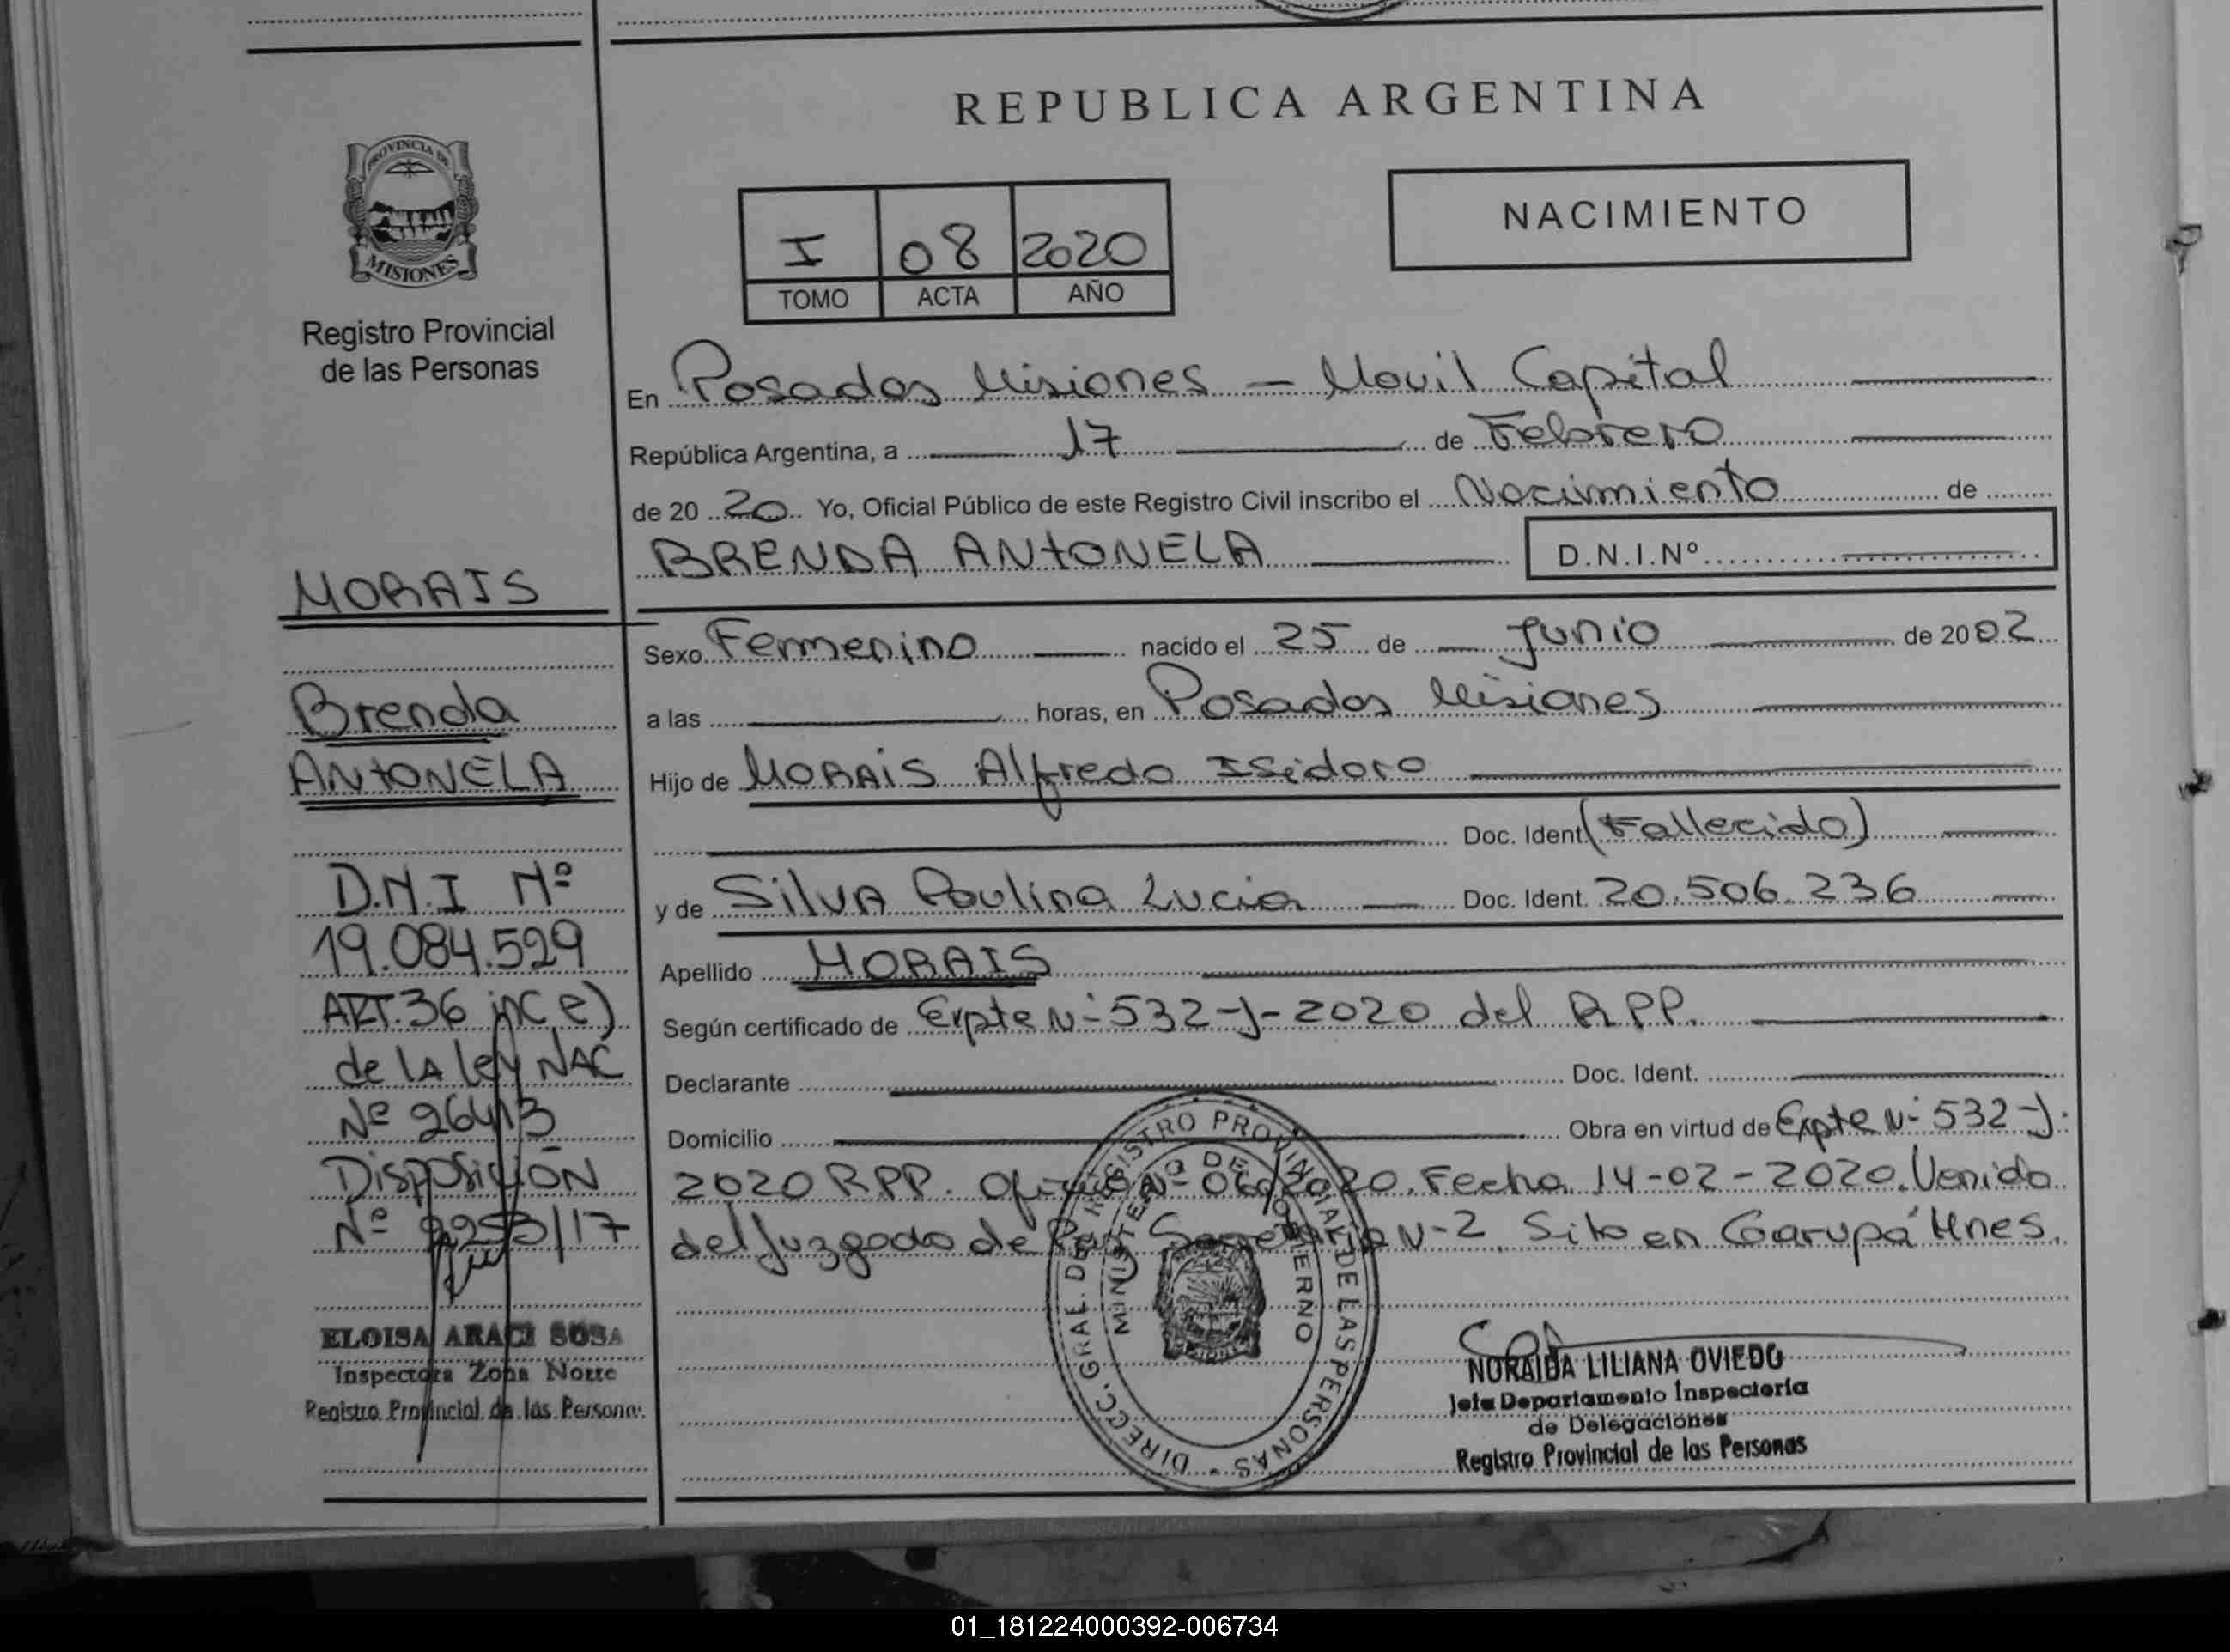 REPUBLICA ARGENTINA
PROVINCIA DE
MISIONES
Registro Provincial
de las Personas
I 08 2020
TOMO ACTA AÑO
NACIMIENTO
En Posadas Misiones – Movil Capital
República Argentina, a 17 de Febrero
de 20 20 Yo, Oficial Público de este Registro Civil inscribo el Nacimiento de
BRENDA ANTONELA D.N.I.Nº
Sexo Femenino nacido el 25 de Junio de 2002
a las horas, en Posadas Misiones
Hijo de MORAIS Alfredo Isidoro
Doc. Ident (Fallecido)
y de SilVA Paulina Lucia Doc. Ident. 20.506.236
Apellido MORAIS
Según certificado de Expte Nº 532-J-2020 del RPP.
Declarante Doc. Ident.
Domicilio Obra en virtud de Expte Nº 532-J-
2020 RPP. Oficio Nº 2020. Fecha 14-02-2020. Venido
del Juzgado de Paz Secretaria Nº 2. Sito en Garupá Mnes.
MORAIS
Brenda
ANTONELA
D.N.I Nº
19.084.529
ART. 36 inc e)
de LA Ley NAC
Nº 26413
Disposición
Nº 2253/17
ELOISA ARACI SOSA
Inspectora Zona Norte
Registro Provincial de las Personas
DIRECC. GRAL. DEL REGISTRO PROVINCIAL DE LAS PERSONAS
MINISTERIO DE GOBIERNO
NORAIDA LILIANA OVIEDO
Jefa Departamento Inspectoría
de Delegaciones
Registro Provincial de las Personas
01_181224000392-006734